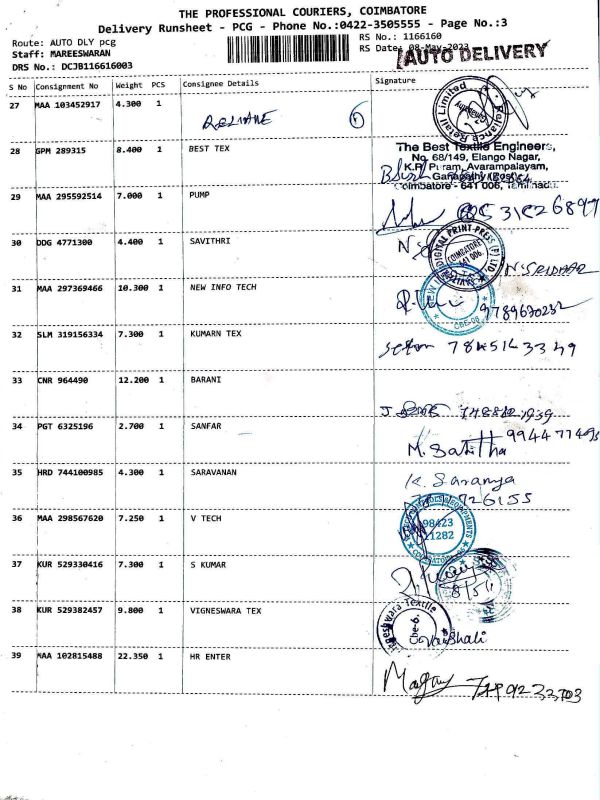 THE PROFESSIONAL COURIERS, COIMBATORE
Delivery Runsheet - PCG - Phone No.:0422-3505555 - Page No.:3
Route: AUTO DLY pcg
RS No.: 1166160
Staff: MAREESWARAN
RS Date: 08-May-2023
AUTO DELIVERY
DRS No.: DCJB116616003
S No Consignment No Weight PCS Consignee Details Signature
27 MAA 103452917 4.300 1
RELIANE 6
Reliance Retail Limited
28 GPM 289315 8.400 1 BEST TEX
The Best Textile Engineers,
No. 68/149, Elango Nagar,
K.R. Puram, Avarampalayam,
Ganapathy (Post),
Coimbatore - 641 006, Tamilnadu.
29 MAA 295592514 7.000 1 PUMP
30 DDG 4771300 4.400 1 SAVITHRI
DIGITAL PRINT-PRESS (P) LTD.
COIMBATORE
641 006.
N. SRIDHAR
31 MAA 297369466 10.300 1 NEW INFO TECH
CBE-06
32 SLM 319156334 7.300 1 KUMARN TEX
33 CNR 964490 12.200 1 BARANI
34 PGT 6325196 2.700 1 SANFAR
M. Sabitha
35 HRD 744100985 4.300 1 SARAVANAN
K. Saranya
726155
36 MAA 298567620 7.250 1 V TECH
98423
11282
37 KUR 529330416 7.300 1 S KUMAR
38 KUR 529382457 9.800 1 VIGNESWARA TEX
Textile
Cbe-6.
Vaishali
39 MAA 102815488 22.350 1 HR ENTER